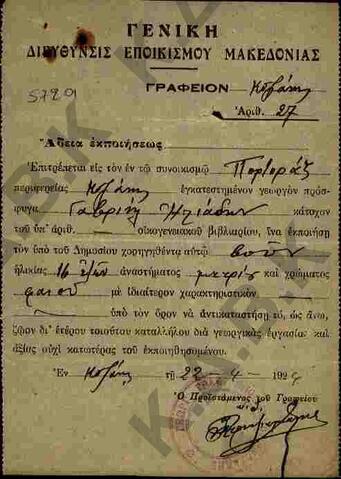 ΓΕΝΙΚΗ
ΔΙΕΥΘΥΝΣΙΣ ΕΠΟΙΚΙΣΜΟΥ ΜΑΚΕΔΟΝΙΑΣ
ΓΡΑΦΕΙΟΝ Κοζάνης
5729
Ἀριθ. 27
Ἄδεια ἐκποιήσεως.
Ἐπιτρέπεται εἰς τὸν ἐν τῷ συνοικισμῷ Πορτοράζ
περιφερείας Κοζάνης ἐγκατεστημένον γεωργὸν πρόσ-
φυγα Γαβριὴλ Ἠλιάδην κάτοχον
τοῦ ὑπ' ἀριθ. οἰκογενειακοῦ βιβλιαρίου, ἵνα ἐκποιήσῃ
τὸν ὑπὸ τοῦ Δημοσίου χορηγηθέντα αὐτῷ βοῦν
ἡλικίας 16 ἐτῶν ἀναστήματος μικρᾶς καὶ χρώματος
φαιοῦ μὲ ἰδιαίτερον χαρακτηριστικὸν
ὑπὸ τὸν ὅρον νὰ ἀντικαταστήσῃ τό, ὡς ἄνω,
ζῷον δι' ἑτέρου τοιούτου καταλλήλου διὰ γεωργικὰς ἐργασίας καὶ
ἀξίας οὐχὶ κατωτέρας τοῦ ἐκποιηθησομένου.
Ἐν Κοζάνῃ τῇ 22-4-192
Ὁ Προϊστάμενος τοῦ Γραφείου